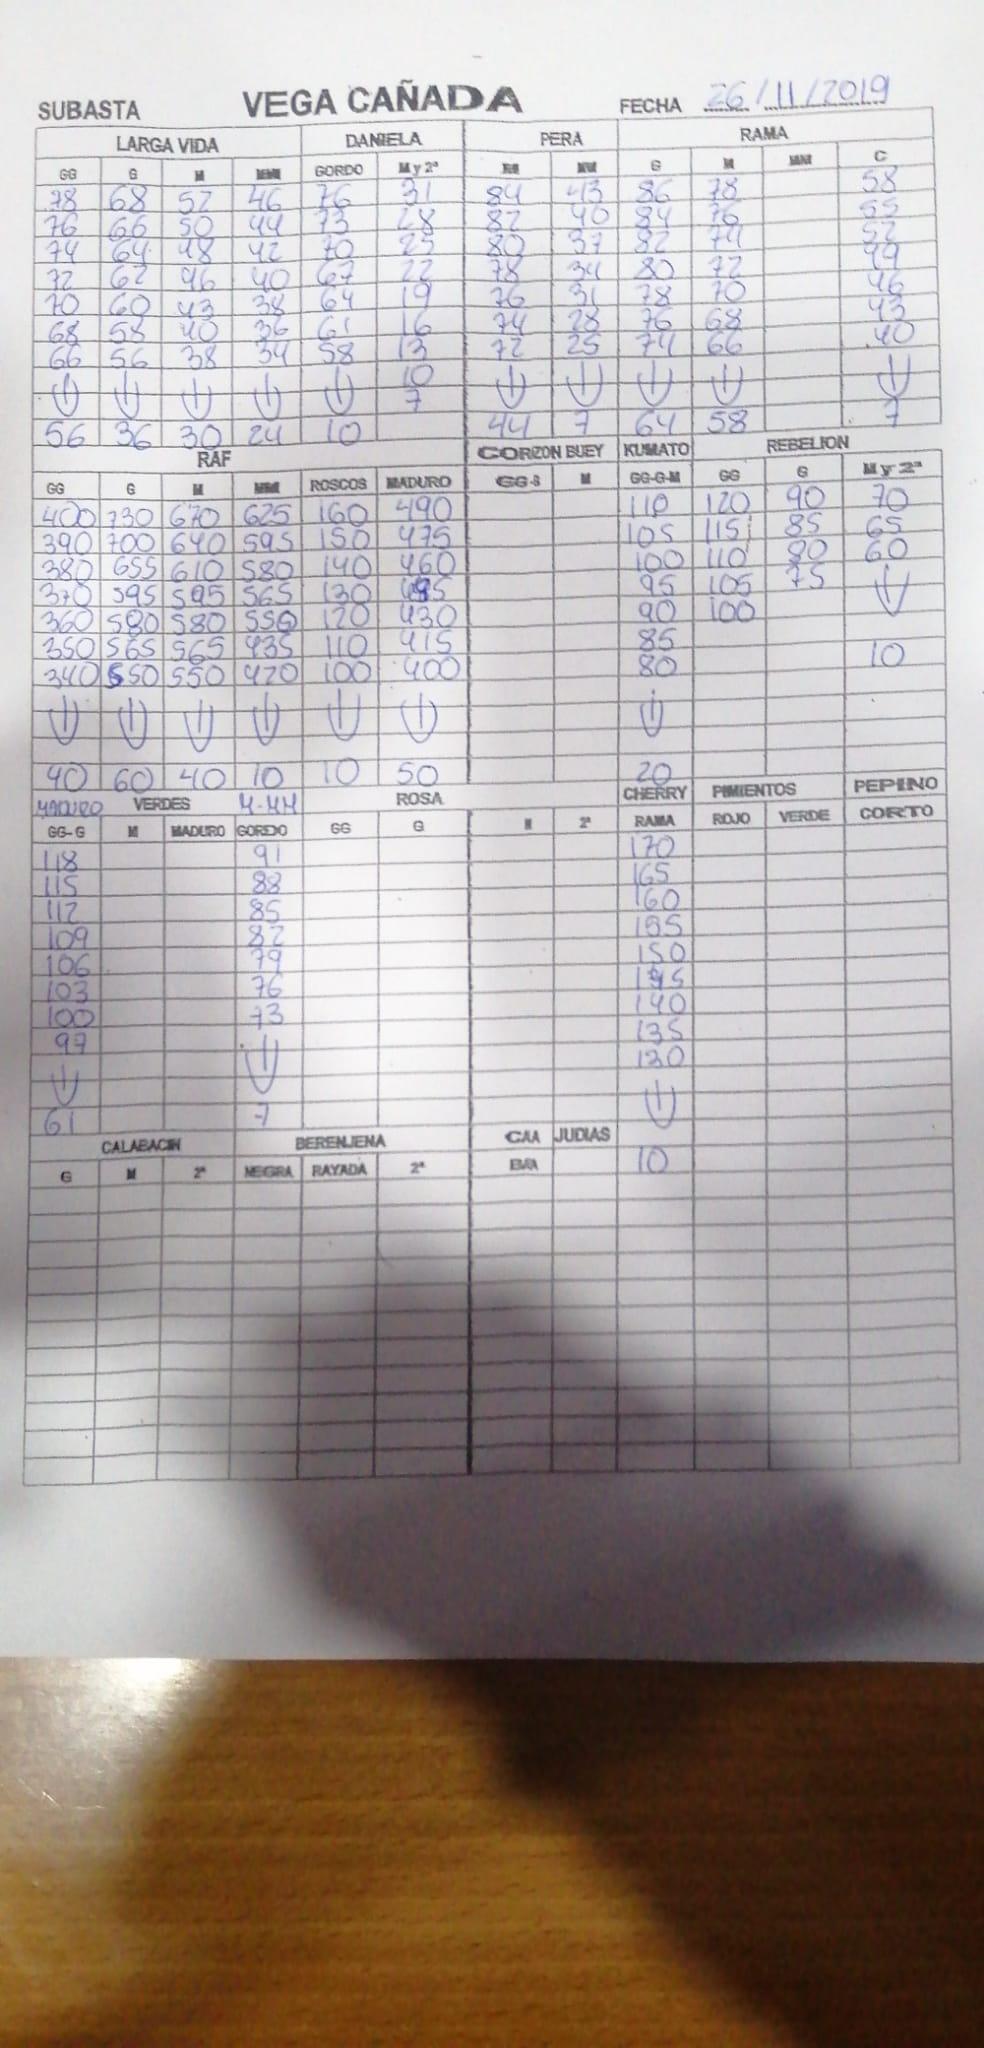 SUBASTA VEGA CAÑADA FECHA 26/11/2019
LARGA VIDA DANIELA PERA RAMA
GG G M MM GORDO M y 2ª M MM G M MM C
78 68 52 46 76 31 84 43 86 78 58
76 66 50 44 73 28 82 40 84 76 55
74 64 48 42 70 25 80 37 82 74 52
72 62 46 40 67 22 78 34 80 72 49
70 60 43 38 64 19 76 31 78 70 46
68 58 40 36 61 16 74 28 76 68 43
66 56 38 34 58 13 72 25 74 66 40
10
7
56 36 30 24 10 44 7 64 58 7
RAF CORIZON BUEY KUMATO REBELION
GG G M MM ROSCOS MADURO GG-S M GG-G-M GG G M y 2ª
400 730 670 625 160 490 110 120 90 70
390 700 640 595 150 475 105 115 85 65
380 655 610 580 140 460 100 110 80 60
370 595 595 565 130 445 95 105 75
360 580 580 550 120 430 90 100
350 565 565 435 110 415 85
340 550 550 420 100 400 80 10
40 60 40 10 10 50 20
MADURO VERDES M-MM ROSA CHERRY PIMIENTOS PEPINO
GG-G M MADURO GORDO GG G M 2ª RAMA ROJO VERDE CORTO
118 91 170
115 88 165
112 85 160
109 82 155
106 79 150
103 76 145
100 73 140
97 135
130
61 7
CALABACIN BERENJENA CAA JUDIAS
G M 2ª NEGRA RAYADA 2ª BVA 10